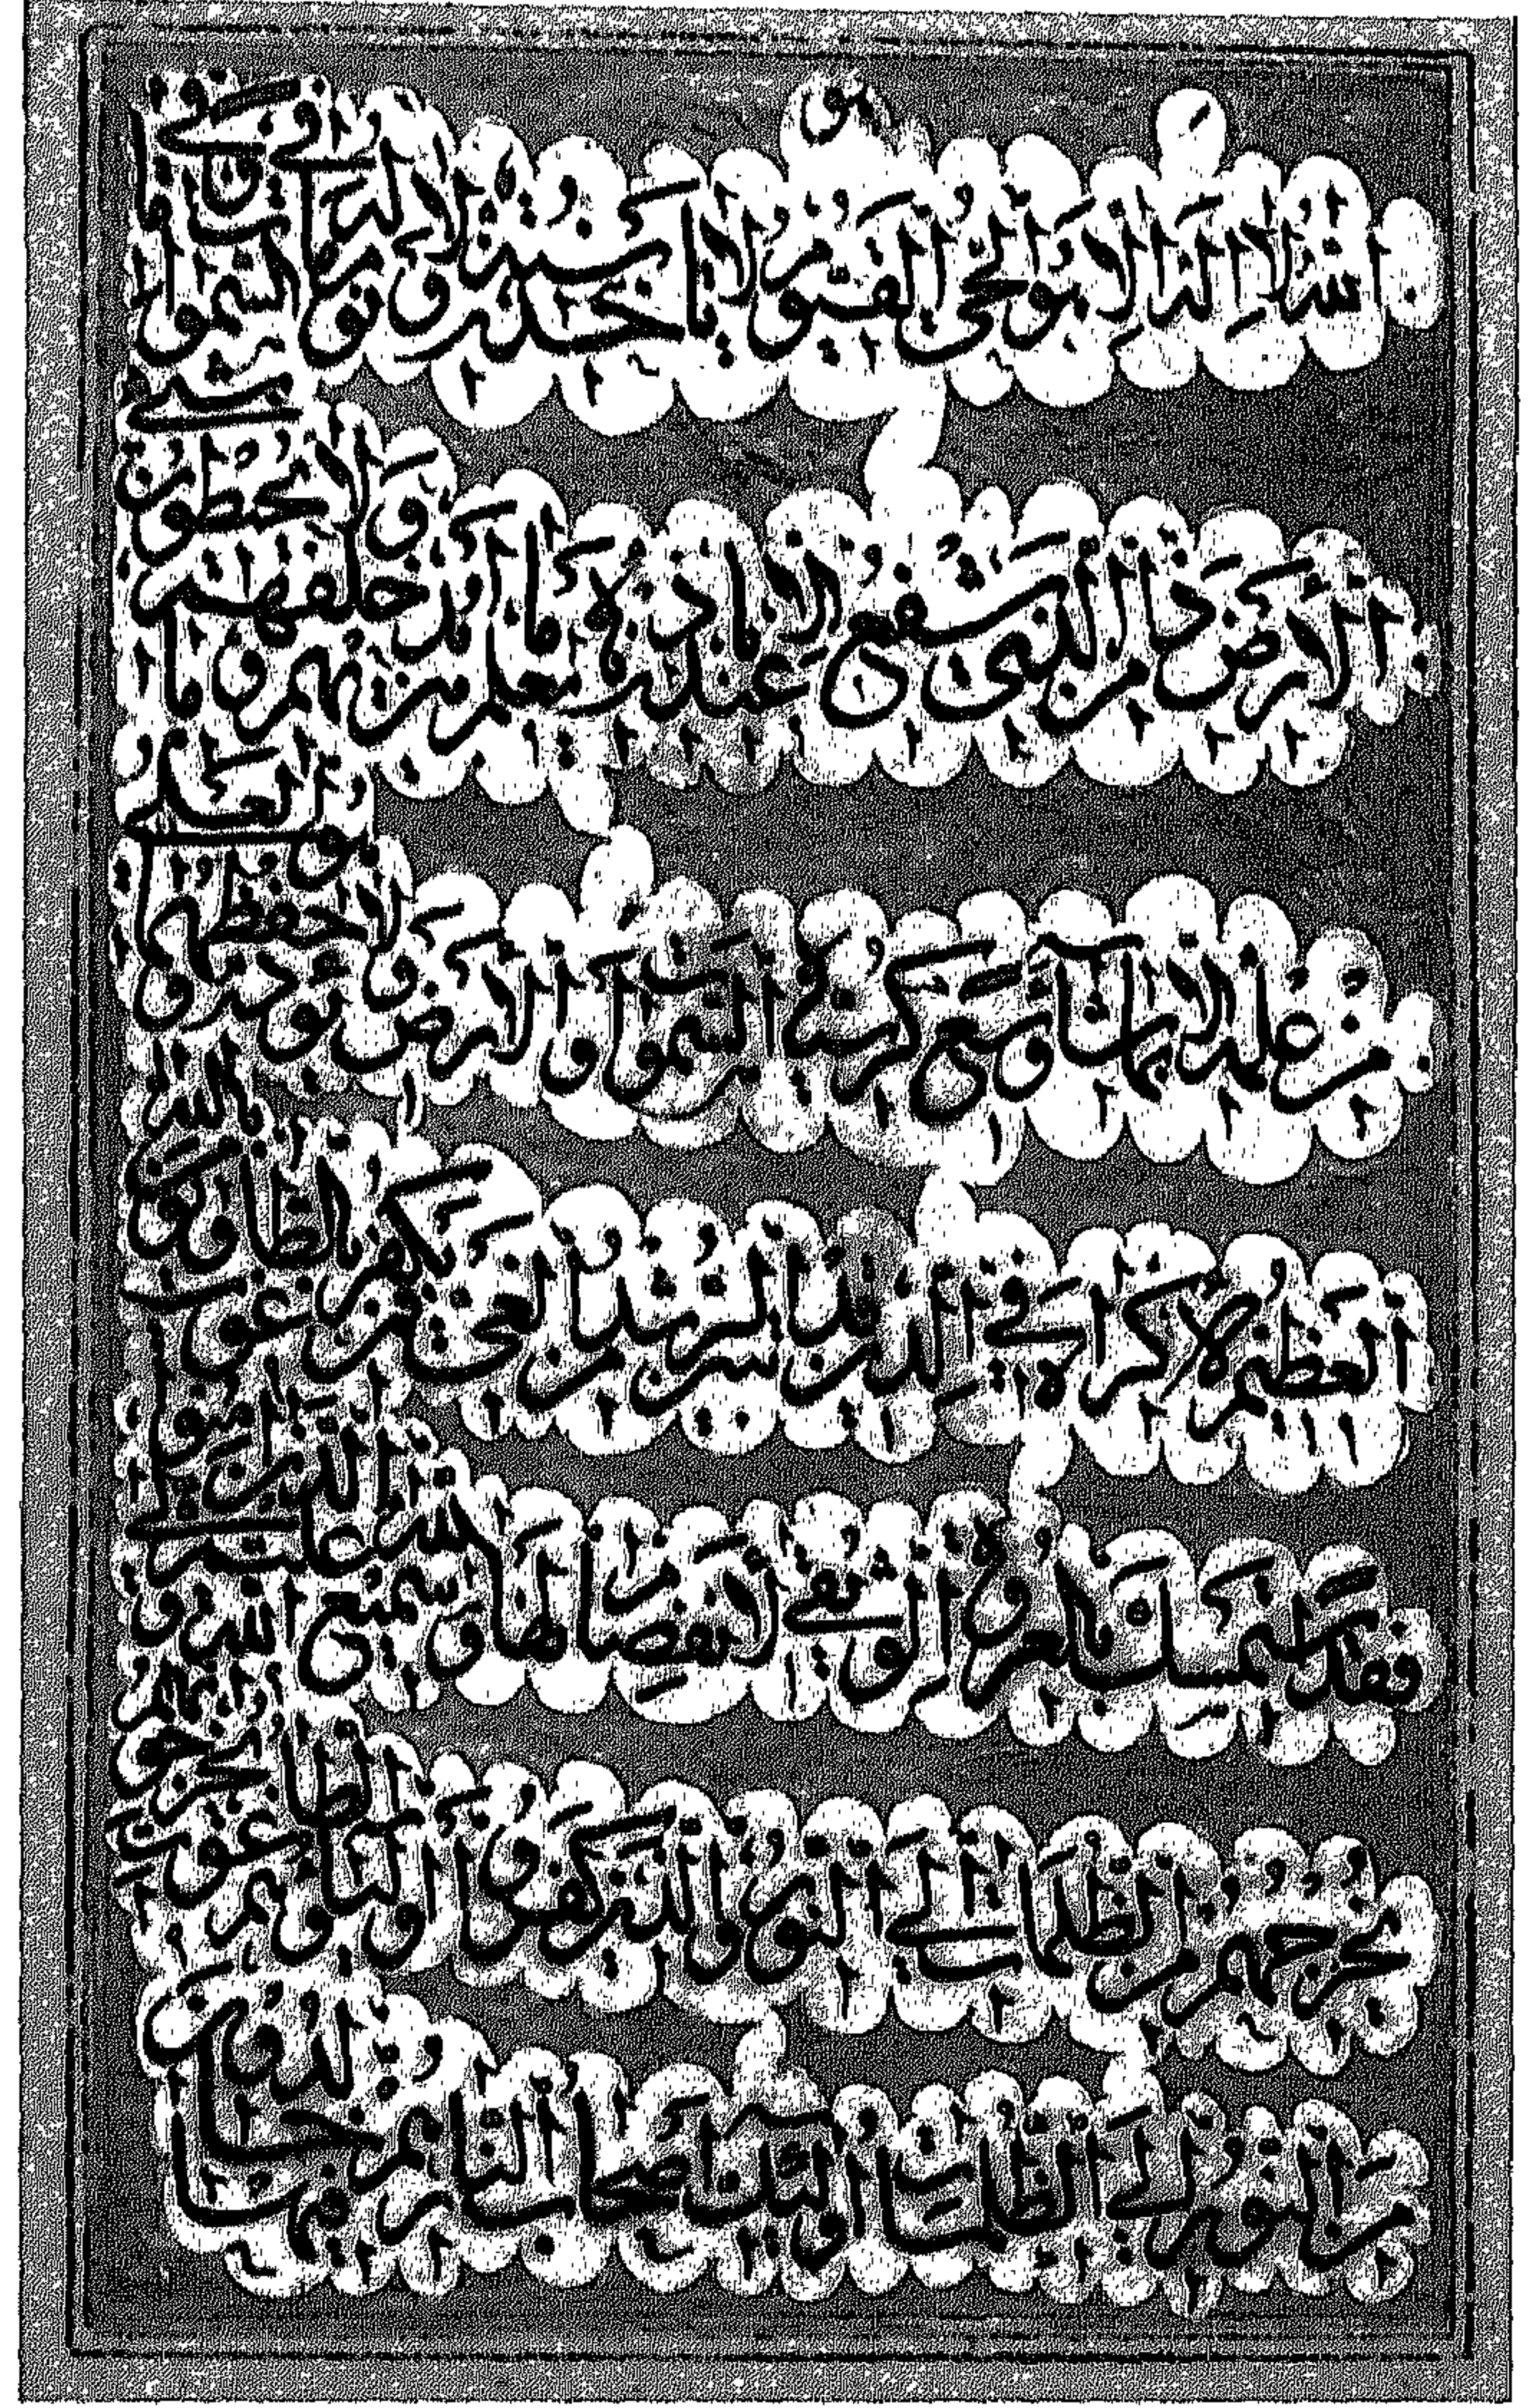 الله لا اله الا هو الحي القيوم لا تأخذه سنة ولا نوم له ما في السموات وما في
الارض من ذا الذي يشفع عنده الا باذنه يعلم ما بين ايديهم وما خلفهم ولا يحيطون بشيء
من علمه الا بما شاء وسع كرسيه السموات والارض ولا يؤده حفظهما وهو العلي
العظيم لا اكراه في الدين قد تبين الرشد من الغي فمن يكفر بالطاغوت ويؤمن بالله
فقد استمسك بالعروة الوثقى لا انفصام لها والله سميع عليم الله ولي الذين آمنوا
يخرجهم من الظلمات الى النور والذين كفروا اولياؤهم الطاغوت يخرجونهم
من النور الى الظلمات اولئك اصحاب النار هم فيها خالدون